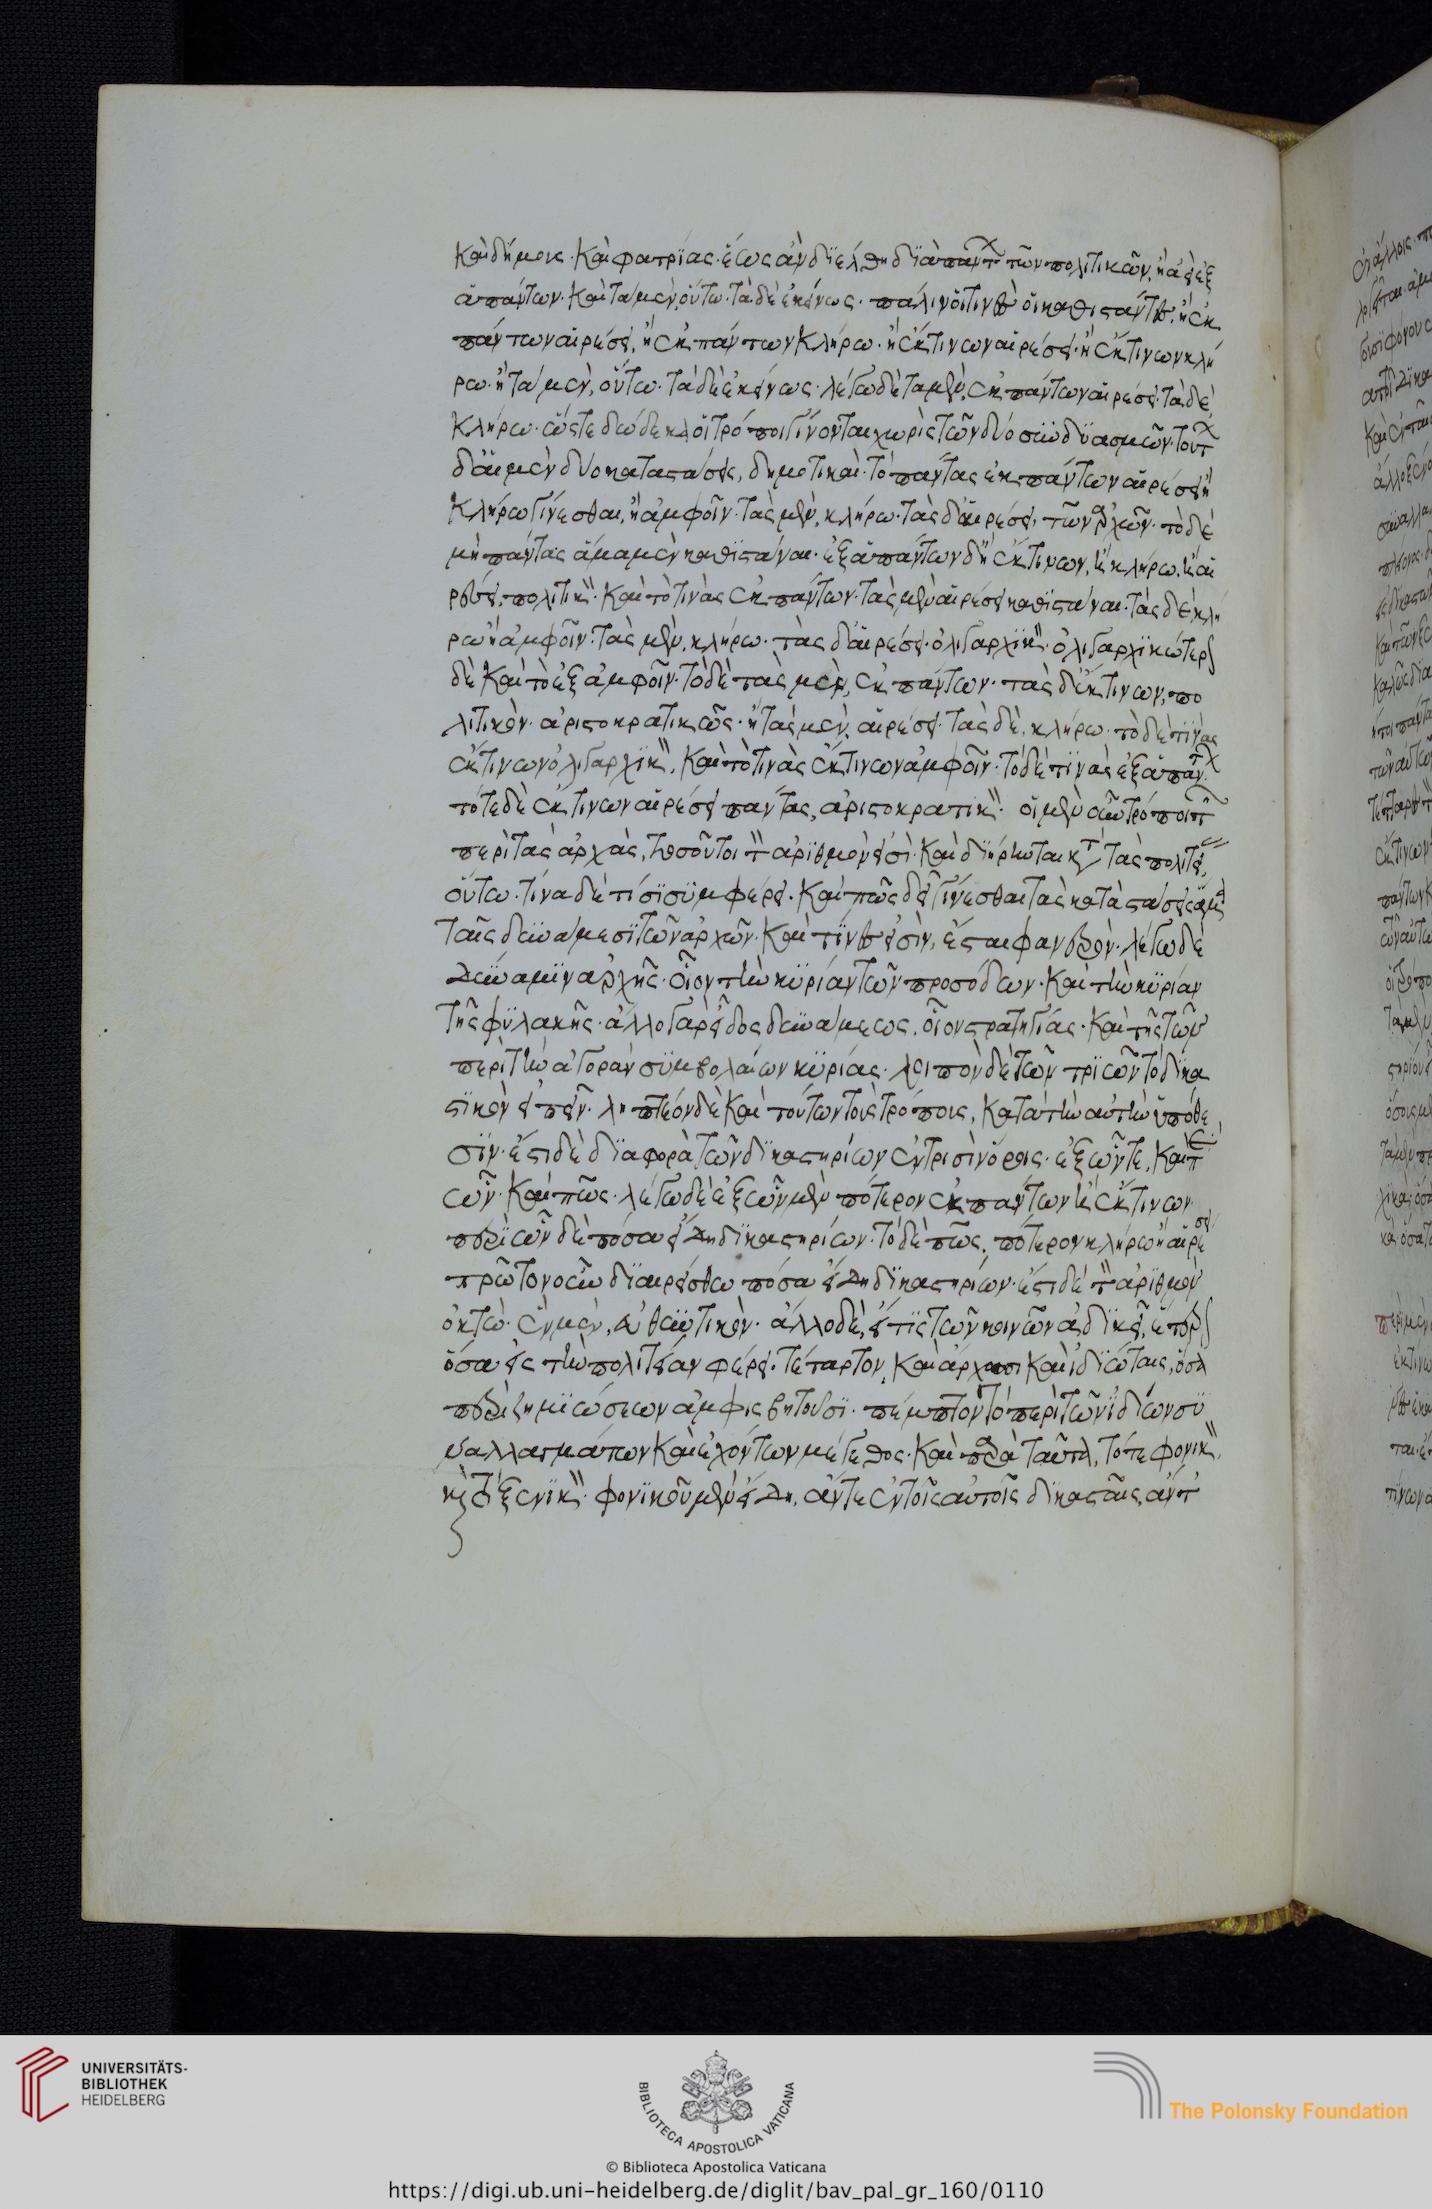 καὶ δήμους καὶ φατρίας. ἕως ἂν διέλθη διὰ πάντων τῶν πολιτικῶν, ἢ ἀεὶ ἐξ
ἁπάντων. καὶ τὰ μὲν, οὕτω. τὰ δὲ ἐκείνως. πάλιν οἱ τινὲς οἱ καθιστάντες, ἢ ἐκ
πάντων αἱρέσει, ἢ ἐκ πάντων κλήρω. ἢ ἐκ τινων αἱρέσει. ἢ ἐκ τινων κλή
ρω. ἢ τὰ μὲν, οὕτω. τὰ δὲ ἐκείνως. λέγω δὲ τὰ μὲν, ἐκ πάντων αἱρέσει. τὰ δὲ
κλήρω. ὥστε δώδεκα οἱ τρόποι γίνονται χωρὶς τῶν δύο συνδυασμῶν. τούτων
δ' αἱ μὲν δύο καταστάσεις, δημοτικαί. τὸ πάντας ἐκ πάντων αἱρέσει ἢ
κλήρω γίνεσθαι, ἢ ἀμφοῖν. τὰς μὲν, κλήρω. τὰς δ' αἱρέσει, τῶν ἀρχῶν. τὸ δὲ
μὴ πάντας ἅμα μὲν καθιστάναι. ἐξ ἁπάντων δ' ἢ ἐκ τινων, ἢ κλήρω, ἢ αἱ
ρέσει, πολιτικὸν. καὶ τὸ τινὰς ἐκ πάντων. τὰς μὲν αἱρέσει καθιστάναι. τὰς δὲ κλή
ρω ἢ ἀμφοῖν. τὰς μὲν, κλήρω. τὰς δ' αἱρέσει. ὀλιγαρχικὸν. ὀλιγαρχικώτερον
δὲ καὶ τὸ ἐξ ἀμφοῖν. τὸ δὲ τὰς μὲν, ἐκ πάντων. τὰς δ' ἐκ τινων, πο
λιτικὸν. ἀριστοκρατικῶς. ἢ τὰς μὲν, αἱρέσει. τὰς δὲ, κλήρω. τὸ δὲ τινὰς
ἐκ τινων ὀλιγαρχικὸν, καὶ τὸ τινὰς ἐκ τινων ἀμφοῖν. τὸ δὲ τινὰς ἐξ ἁπάντων.
τότε δὲ ἐκ τινων αἱρέσει πάντας, ἀριστοκρατικὸν. οἱ μὲν οὖν τρόποι τῶν
περὶ τὰς ἀρχὰς, τοσοῦτοι τὸν ἀριθμὸν εἰσὶ. καὶ διήρηνται κατὰ τὰς πολιτείας,
οὕτω. τίνα δὲ τίσι συμφέρει. καὶ πῶς δεῖ γίνεσθαι τὰς καταστάσεις ἅμα
ταῖς δυνάμεσι τῶν ἀρχῶν. καὶ τίνες εἰσὶν, ἔσται φανερὸν. λέγω δὲ
δύναμιν ἀρχῆς. οἷον τὴν κυρίαν τῶν προσόδων. καὶ τὴν κυρίαν
τῆς φυλακῆς. ἄλλο γὰρ εἶδος δυνάμεως, οἷον στρατηγίας. καὶ τῆς τῶν
περὶ τὴν ἀγορὰν συμβολαίων κυρίας. λοιπὸν δὲ τῶν τριῶν τὸ δικα
στικὸν εἰπεῖν. ληπτέον δὲ καὶ τούτων τοὺς τρόπους, κατὰ τὴν αὐτὴν ὑπόθε
σιν. ἔστι δὲ διαφορὰ τῶν δικαστηρίων ἐν τρισὶν ὅροις. ἐξ ὧν τε, καὶ περὶ
ὧν. καὶ πῶς. λέγω δὲ ἐξ ὧν μὲν πότερον ἐκ πάντων ἢ ἐκ τινων.
περὶ ὧν δὲ πόσα εἴδη δικαστηρίων. τὸ δὲ πῶς, πότερον κλήρω ἢ αἱρέσει
πρῶτον οὖν διαιρείσθω πόσα εἴδη δικαστηρίων. ἔστι δὲ τὸν ἀριθμὸν
ὀκτώ. ἓν μὲν, εὐθυντικὸν. ἄλλο δὲ, εἴ τις τῶν κοινῶν ἀδικεῖ, ἕτερον
ὅσα εἰς τὴν πολιτείαν φέρει. τέταρτον, καὶ ἄρχουσι καὶ ἰδιώταις, ὅσα
περὶ ζημιώσεων ἀμφισβητοῦσι. πέμπτον τὸ περὶ τῶν ἰδίων συ
ναλλαγμάτων καὶ ἐχόντων μέγεθος. καὶ παρὰ ταῦτα, τό τε φονικὸν,
καὶ τὸ ξενικὸν. φονικοῦ μὲν εἴδη, ἄν τε ἐν τοῖς αὐτοῖς δικασταῖς, ἄν τ'
UNIVERSITÄTS-
BIBLIOTHEK
HEIDELBERG
BIBLIOTECA APOSTOLICA VATICANA
© Biblioteca Apostolica Vaticana
The Polonsky Foundation
https://digi.ub.uni-heidelberg.de/diglit/bav_pal_gr_160/0110